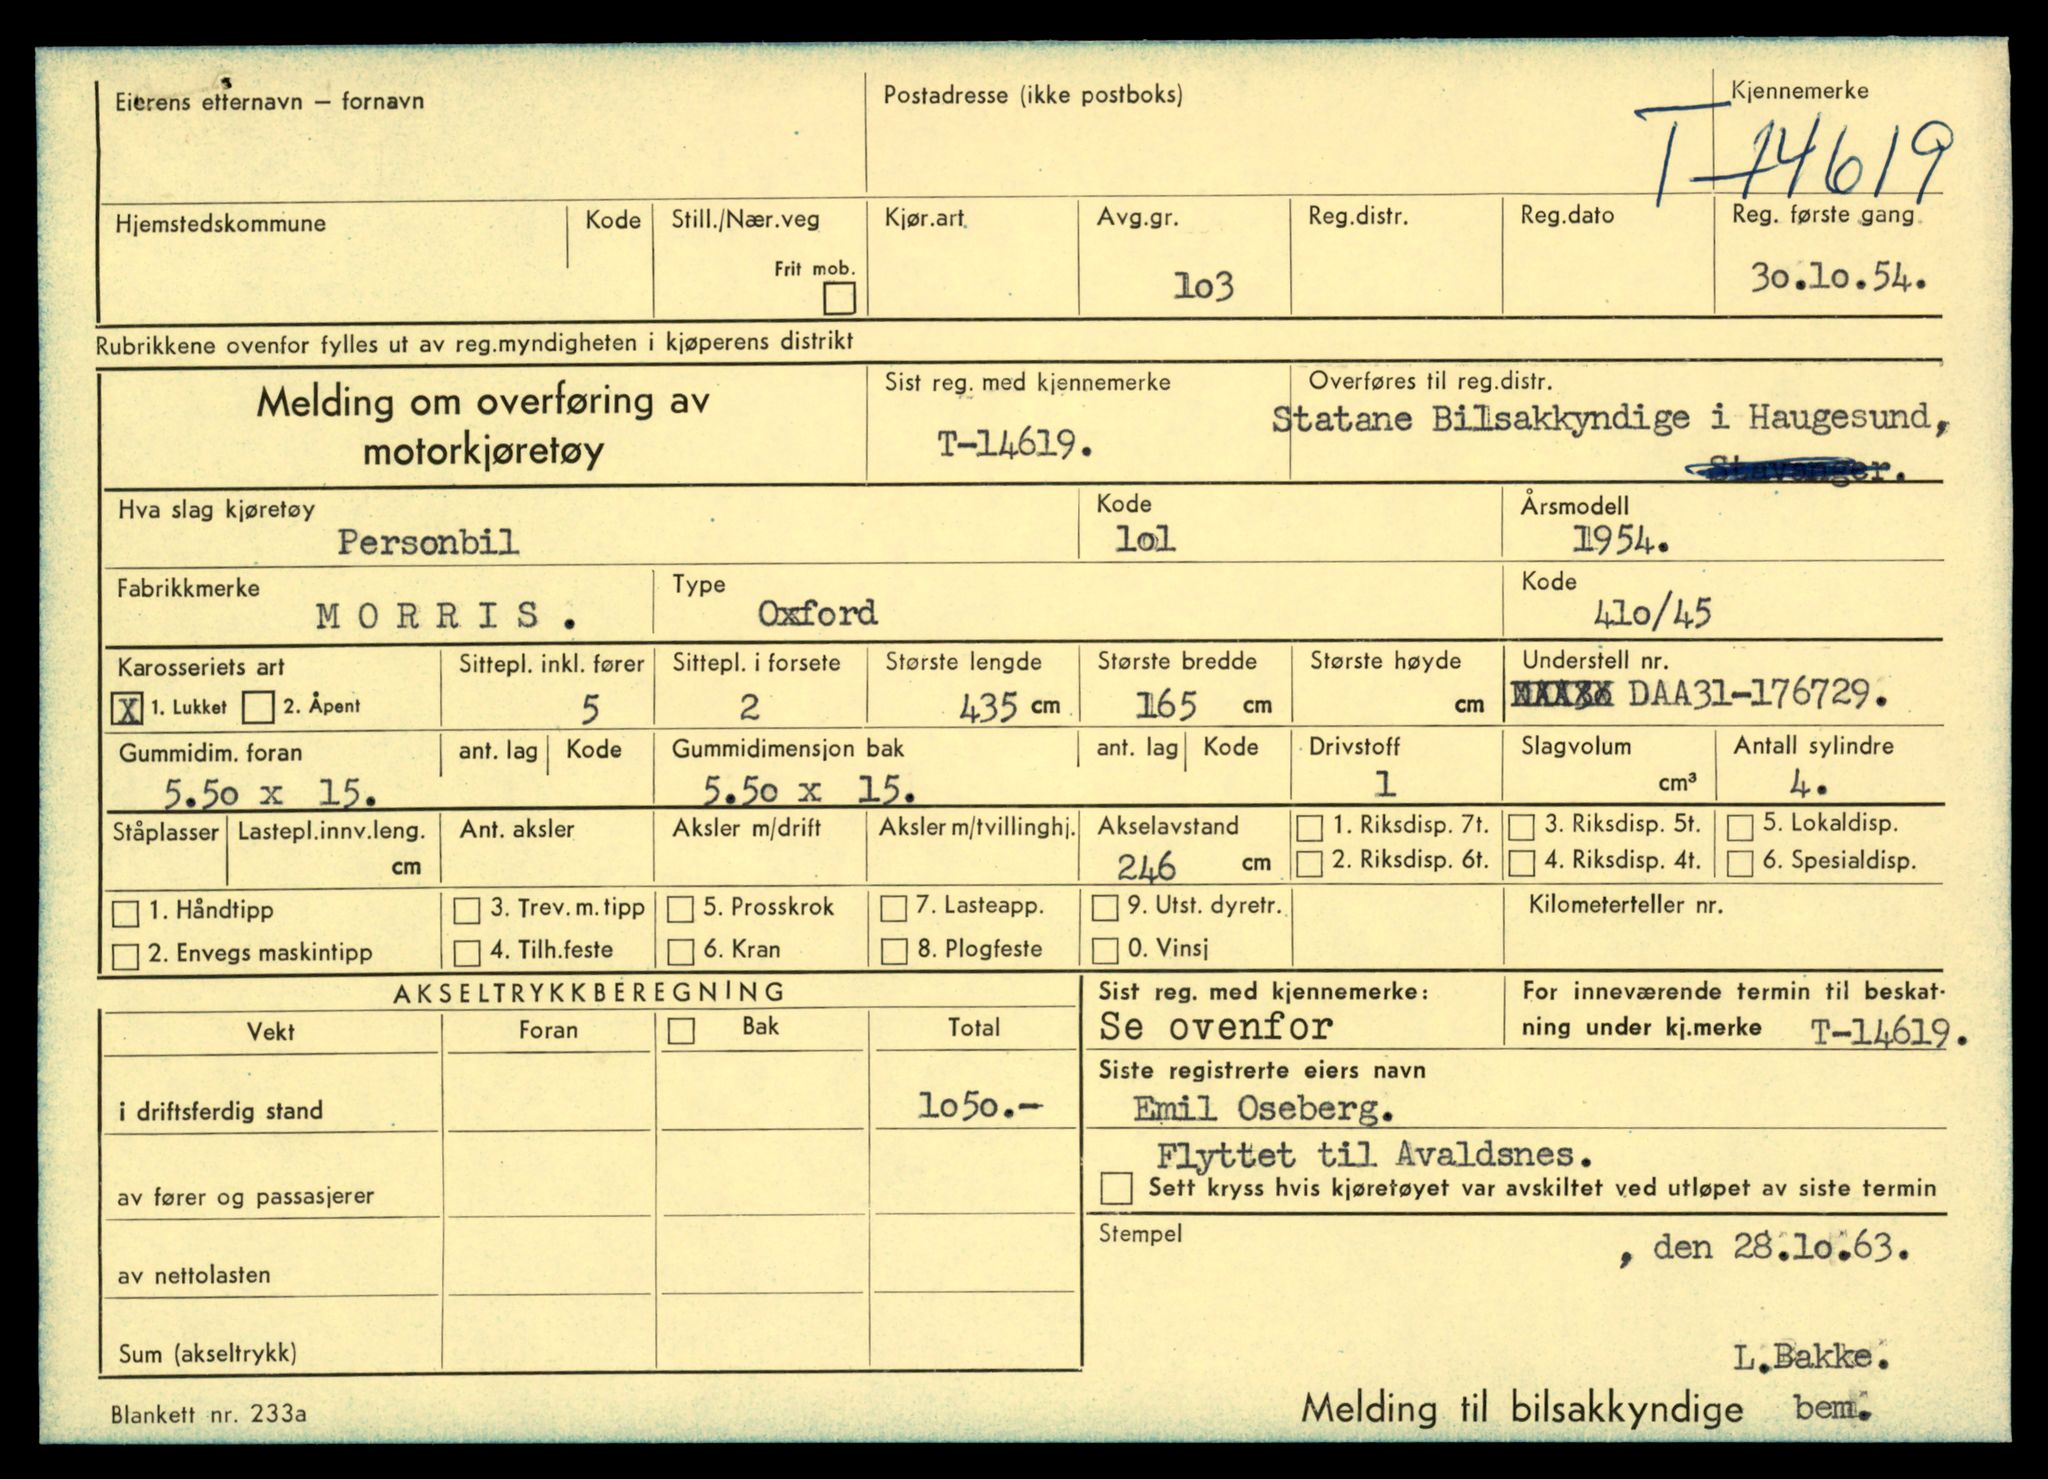 Eierens etternavn – fornavn
Postadresse (ikke postboks)
Kjennemerke
T-14619
Hjemstedskommune
Kode
Still./Nær.veg
Frit mob.
Kjør.art
Avg.gr.
103
Reg.distr.
Reg.dato
Reg. første gang
30.10.54.
Rubrikkene ovenfor fylles ut av reg.myndigheten i kjøperens distrikt
Melding om overføring av
motorkjøretøy
Sist reg. med kjennemerke
T-14619.
Overføres til reg.distr.
Statane Bilsakkyndige i Haugesund,
Stavanger.
Hva slag kjøretøy
Personbil
Kode
101
Årsmodell
1954.
Fabrikkmerke
MORRIS.
Type
Oxford
Kode
410/45
Karosseriets art
X 1. Lukket 2. Åpent
Sittepl. inkl. fører
5
Sittepl. i forsete
2
Største lengde
435 cm
Største bredde
165 cm
Største høyde
cm
Understell nr.
DAA31-176729.
Gummidim. foran
5.50 x 15.
ant. lag
Kode
Gummidimensjon bak
5.50 x 15.
ant. lag
Kode
Drivstoff
1
Slagvolum
cm³
Antall sylindre
4.
Ståplasser
Lastepl.innv.leng.
cm
Ant. aksler
Aksler m/drift
Aksler m/tvillinghj.
Akselavstand
246 cm
1. Riksdisp. 7t.
2. Riksdisp. 6t.
3. Riksdisp. 5t.
4. Riksdisp. 4t.
5. Lokaldisp.
6. Spesialdisp.
1. Håndtipp
2. Envegs maskintipp
3. Trev. m. tipp
4. Tilh.feste
5. Prosskrok
6. Kran
7. Lasteapp.
8. Plogfeste
9. Utst. dyretr.
0. Vinsj
Kilometerteller nr.
AKSELTRYKKBEREGNING
Vekt
Foran
Bak
Total
i driftsferdig stand
1050.-
av fører og passasjerer
av nettolasten
Sum (akseltrykk)
Sist reg. med kjennemerke:
Se ovenfor
For inneværende termin til beskat-
ning under kj.merke T-14619.
Siste registrerte eiers navn
Emil Oseberg.
Flyttet til Avaldsnes.
Sett kryss hvis kjøretøyet var avskiltet ved utløpet av siste termin
Stempel
, den 28.10.63.
L.Bakke.
Blankett nr. 233a
Melding til bilsakkyndige bem.